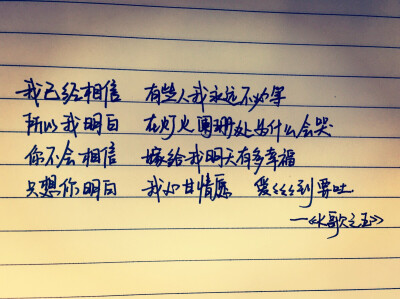 我已经相信 有些人我永远不必等
所以我明白 在灯火阑珊处为什么会哭
你不会相信 嫁给我明天有多幸福
只想你明白 我心甘情愿 爱々々々到要吐
—《K歌之王》